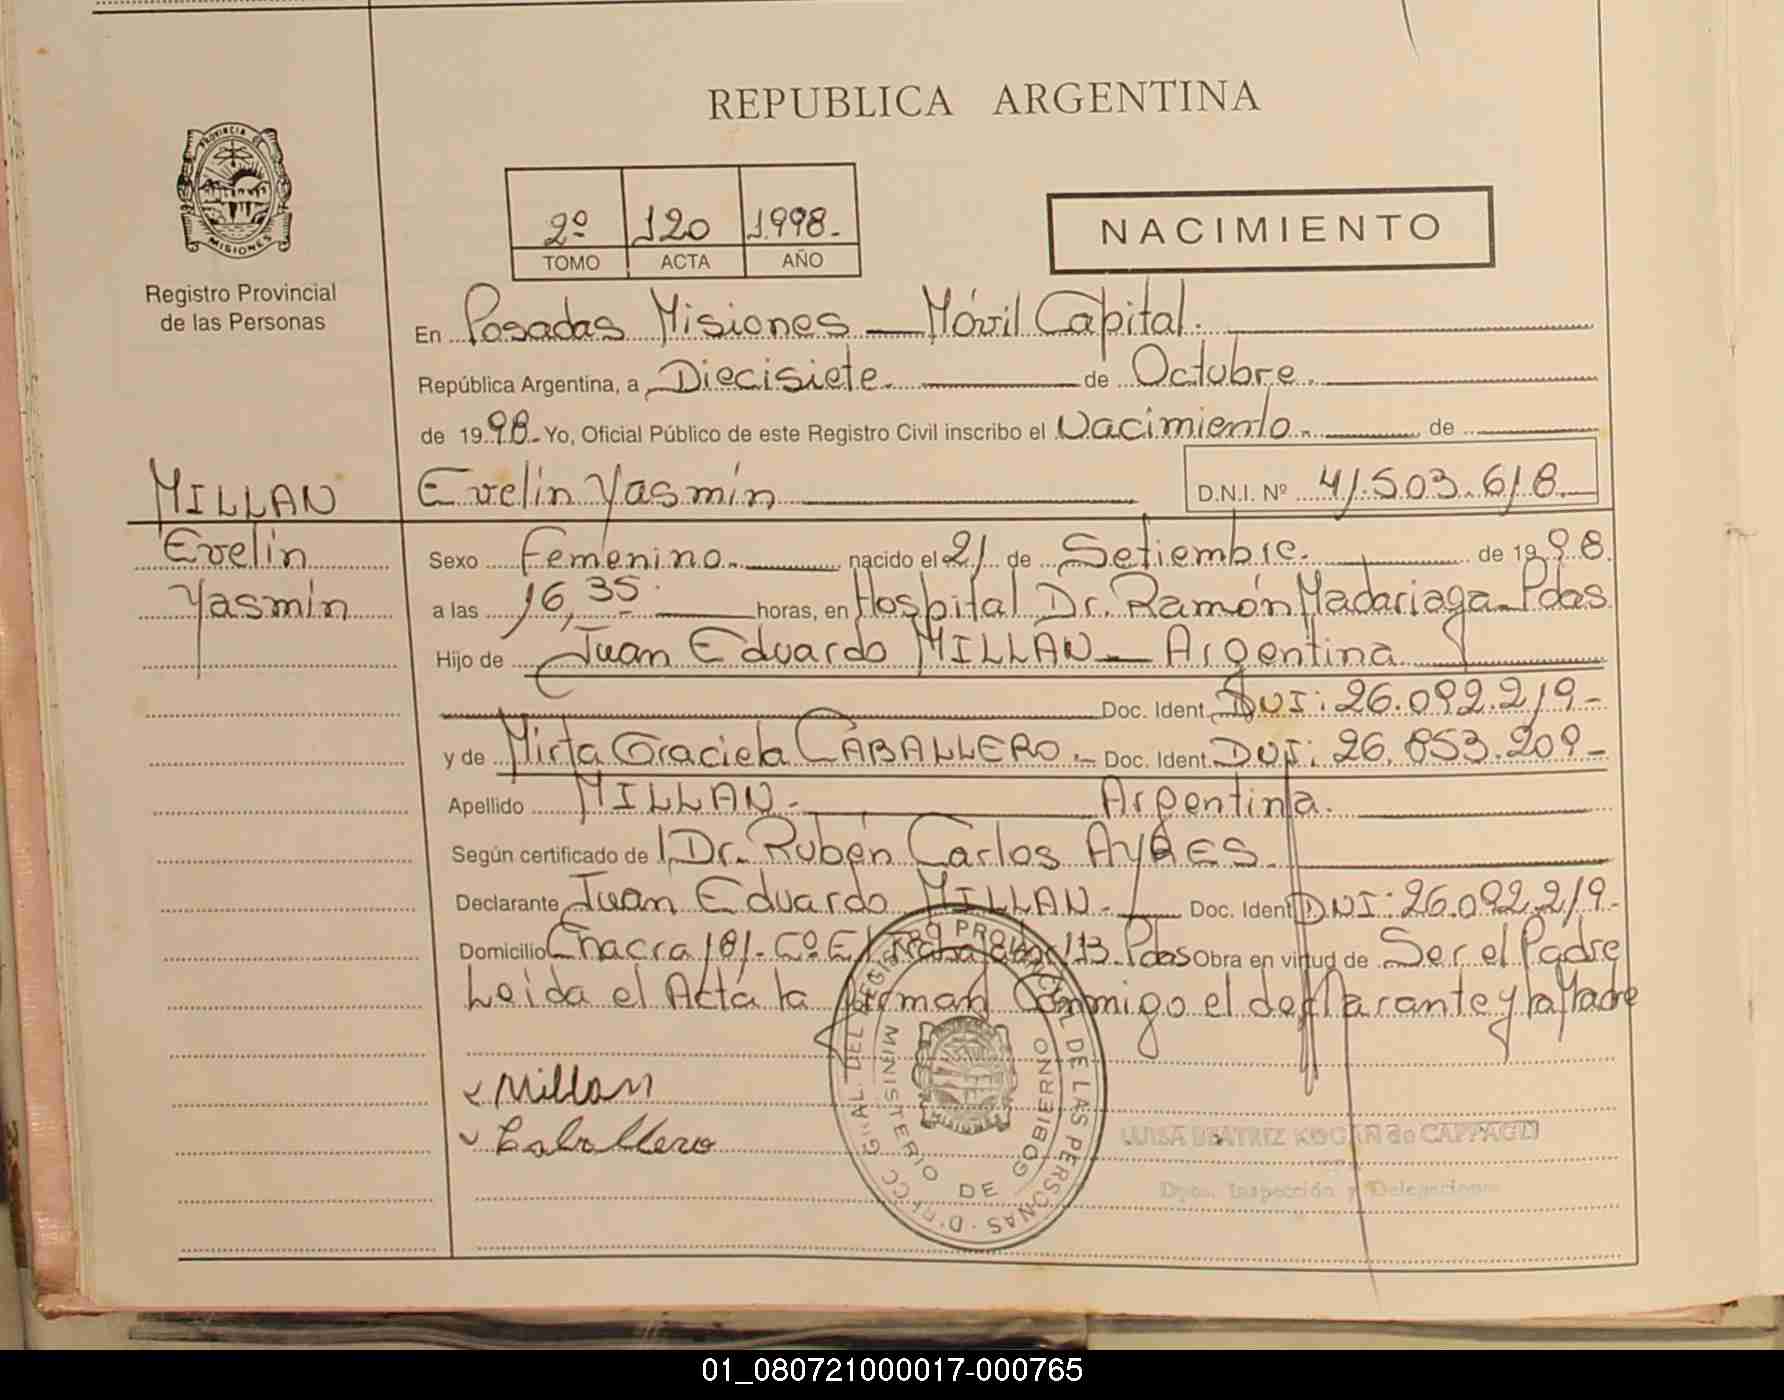 REPUBLICA ARGENTINA
PROVINCIA DE MISIONES
Registro Provincial
de las Personas
2º 120 1998.-
TOMO ACTA AÑO
NACIMIENTO
En Posadas Misiones — Móvil Capital.
República Argentina, a Diecisiete. de Octubre.
de 1998.- Yo, Oficial Público de este Registro Civil inscribo el Nacimiento.- de
MILLAN Evelin Yasmín D.N.I. Nº 41.503.618.
Evelin Sexo Femenino.- nacido el 21 de Setiembre. de 1998.
Yasmín a las 16,35. horas, en Hospital Dr. Ramón Madariaga-Pdas
Hijo de Juan Eduardo MILLAN — Argentina
Doc. Ident. DNI: 26.092.219-
y de Mirta Graciela CABALLERO.- Doc. Ident. DNI: 26.853.209-
Apellido MILLAN.- Argentina.
Según certificado de Dr. Rubén Carlos AYRES.
Declarante Juan Eduardo MILLAN.- Doc. Ident DNI: 26.092.219-
Domicilio Chacra 181- Cº El 113. Pdas Obra en virtud de Ser el Padre
Leida el Acta la Firman Conmigo el declarante y la Madre
Millan
Caballero
GRAL. DEL REGISTRO PROVINCIAL DE LAS PERSONAS
MINISTERIO DE GOBIERNO
LUISA BEATRIZ KOGAN de CAPPAGLI
Dpto. Inspección y Delegaciones
01_080721000017-000765